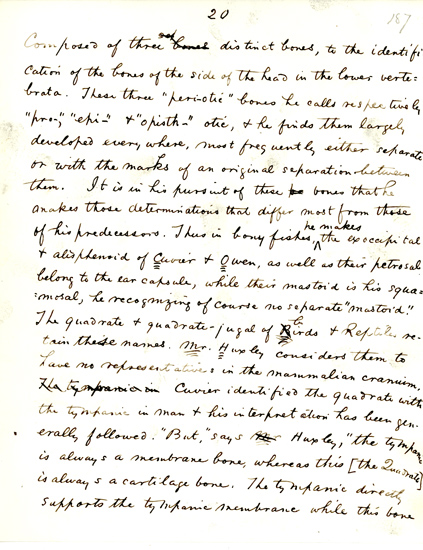 20
187
Composed of three distinct bones, to the identifi
cation of the bones of the side of the head in the lower verte=
brata. These three "peri-otic" bones he calls respectively
"pro-" "epi-" & "opisth-" otic, & he finds them largely
developed every where, most frequently either separate
or with the marks of an original separation between
them. It is in his pursuit of these bones that he
makes those determinations that differ most from those
of his predecessors. Thus in bony fishes he makes the exoccipital
& alisphenoid of Cuvier & Owen, as well as their petrosal
belong to the ear capsule, while their mastoid is his squa=
=mosal, he recognizing of course no separate "mastoid".
The quadrate & quadrato-jugal of Birds & Reptiles re-
tain these names. Mr. Huxley considers them to
have no representatives in the mammalian cranium,
The tympanic in Cuvier identified the quadrate with
the tympanic in man & his interpretation has been gen-
erally followed. "But," says Mr Huxley, "the tympanic
is always a membrane bone, whereas this [the Quadrate]
is always a cartilage bone. The tympanic directly
supports the tympanic membrane while this bone